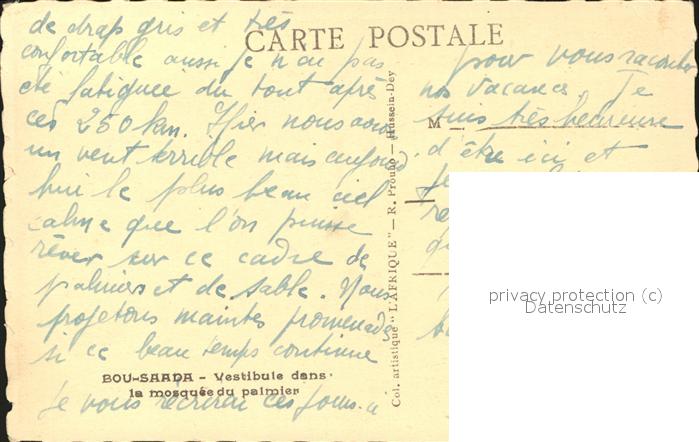 CARTE POSTALE
de drap gris et très
confortable aussi je n'ai pas
été fatiguée du tout après
ces 250 km. Hier nous avions
un vent terrible mais aujourd'
hui le plus beau ciel
calme que l'on puisse
rêver sur ce cadre de
palmiers et de sable. Nous
projetons maintes promenades
si ce beau temps continue
BOU-SAADA - Vestibule dans
la mosquée du palmier
je vous récrirai ces jours-ci
Col. artistique "L'AFRIQUE" - R. Prouho - Hussein-Dey
pour vous raconter
nos vacances. Je
M
suis très heureuse
d'être ici et
privacy protection (c)
Datenschutz